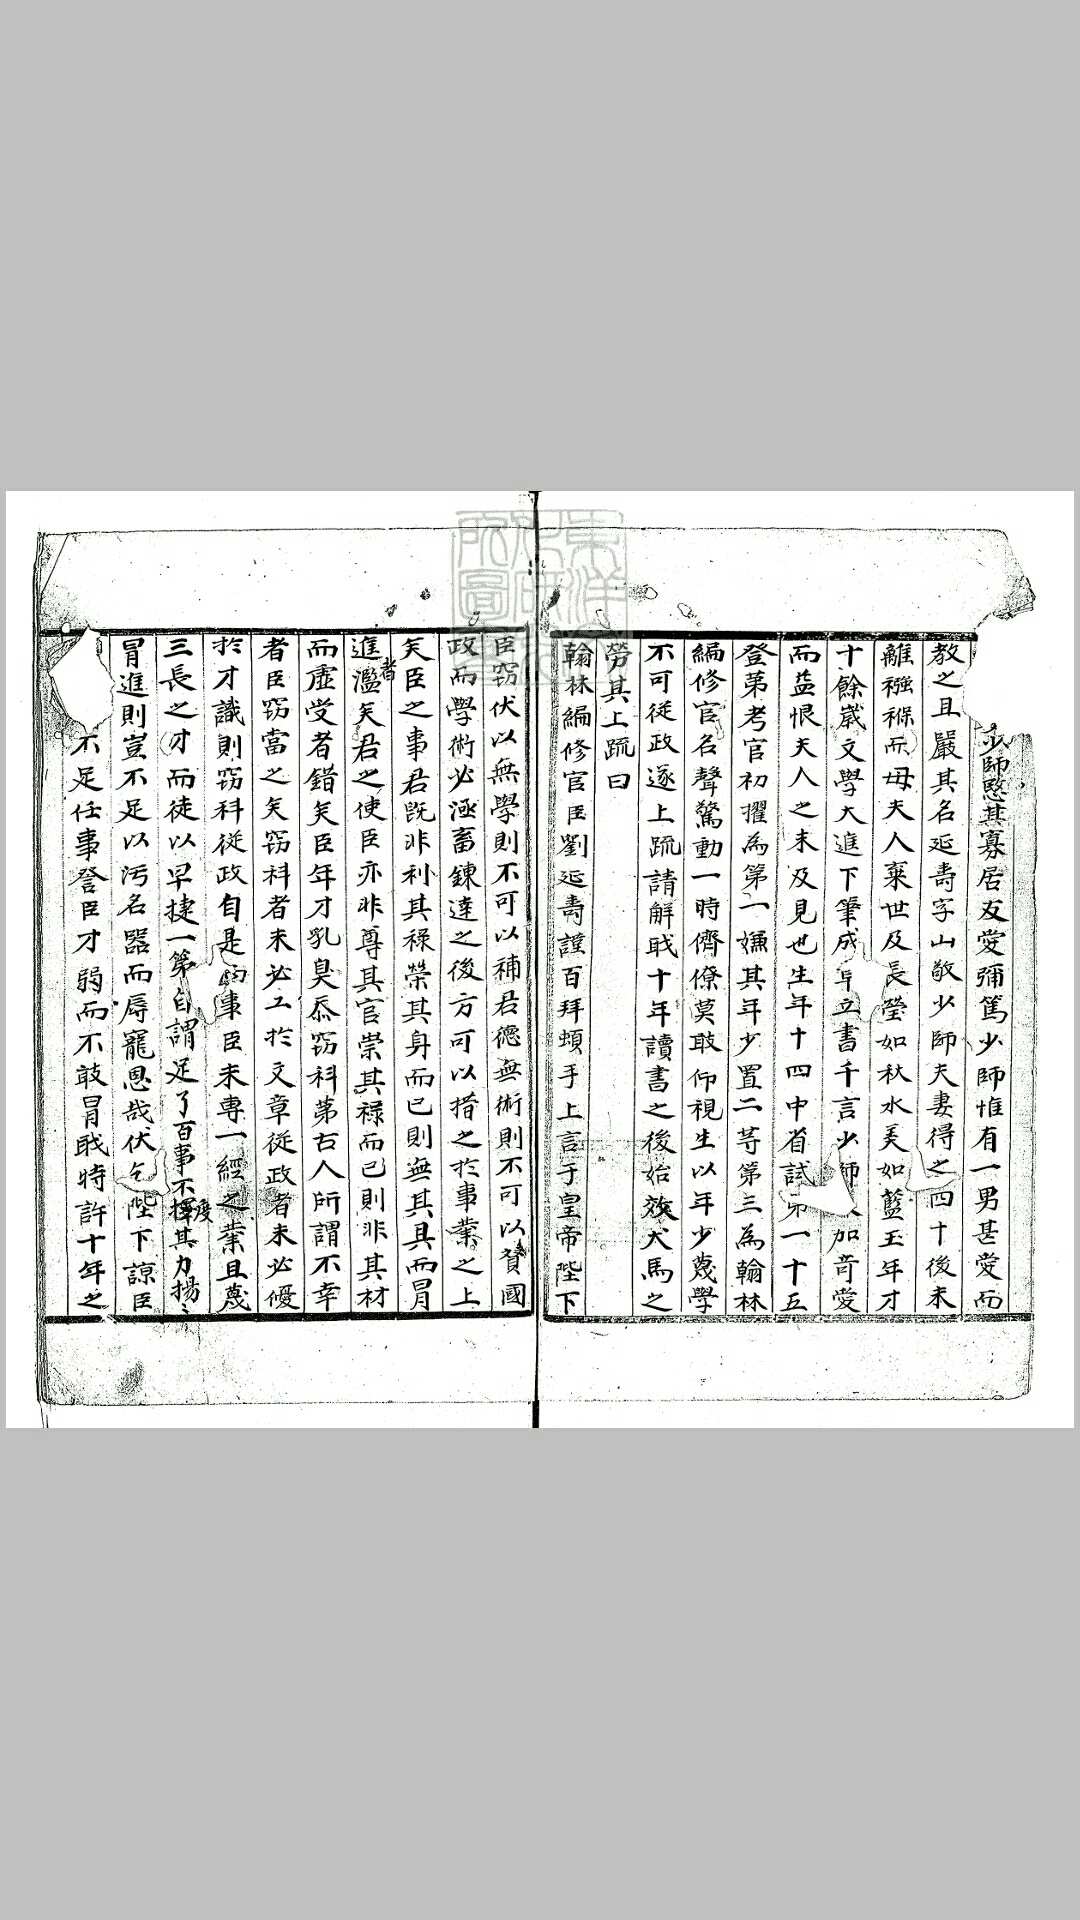 少師愍其寡居友愛彌篤少師惟有一男甚愛而
教之且嚴其名延壽字山敬少師夫妻得之四十後未
離襁褓而母夫人棄世及長瑩如秋水美如藍玉年才
十餘歲文學大進下筆成章立書千言少師加奇愛
而益恨夫人之未及見也生年十四中省試第一十五
登第考官初擢為第一嫌其年少置二等第三為翰林
編修官名聲驚動一時儕僚莫敢仰視生以年少蔑學
不可從政遂上疏請解職十年讀書之後始效犬馬之
勞其上疏曰
翰林編修官臣劉延壽謹百拜頓手上言于皇帝陛下
臣窃伏以無學則不可以補君德無術則不可以贊國
政而學術必涵畜鍊達之後方可以措之於事業之上
矣臣之事君旣非利其祿榮其身而已則無其具而冒
進者濫矣君之使臣亦非尊其官崇其祿而已則非其材
而虛受者錯矣臣年才乳臭忝窃科第古人所謂不幸
者臣窃當之矣窃科者未必工於文章從政者未必優
於才識則窃科從政自是事臣未專一經之業且蔑
三長之才而徒以早捷一第自謂足了百事不度其力揚〻
冒進則豈不足以污名器而辱寵恩哉伏乞陛下諒臣
不足任事登臣才弱而不敢冒職特許十年之
東洋文庫